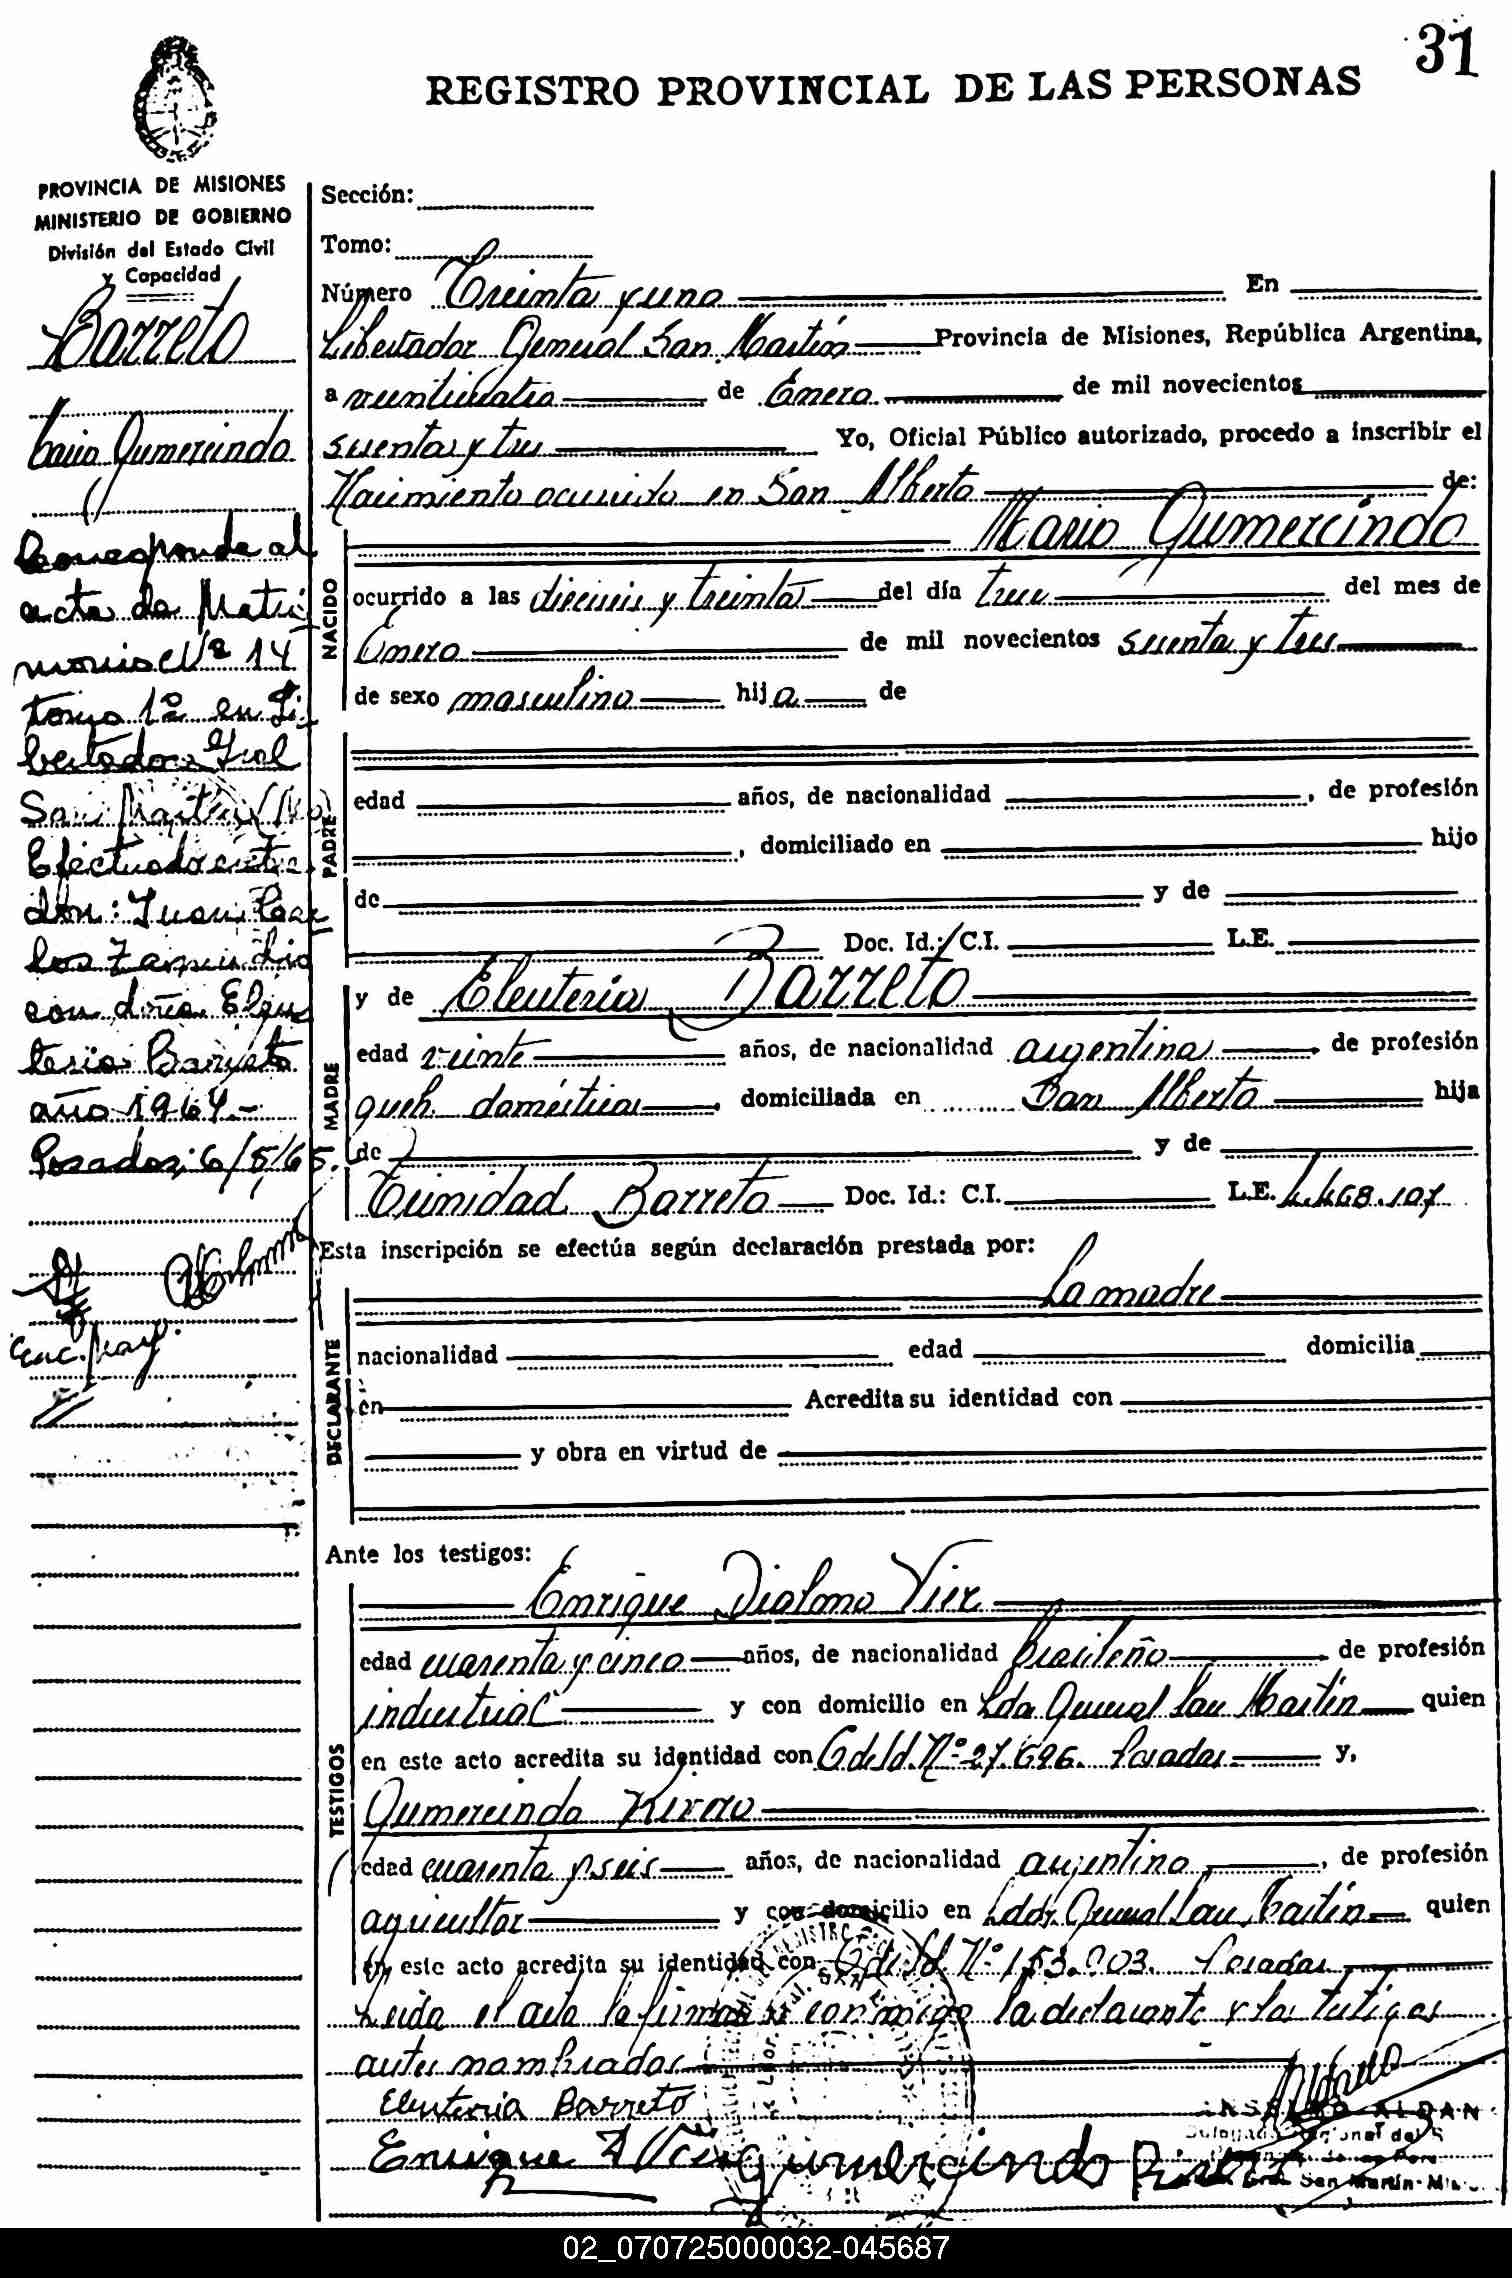 31
REGISTRO PROVINCIAL DE LAS PERSONAS
PROVINCIA DE MISIONES
MINISTERIO DE GOBIERNO
División del Estado Civil
y Capacidad
Barreto
Mario Gumercindo
Corresponde al
acta de Matri
monio Nº 14
tomo 1º en Li
bertador Gral
San Martín (Mo)
Efectuado entre
don: Juan Car
los Zamudio
con doña Eleu
teria Barreto
año 1964.-
Posadas: 6/5/65.
Enc. Marg.
Sección:
Tomo:
Número Treinta y uno En
Libertador General San Martín Provincia de Misiones, República Argentina,
a veinticuatro de Enero de mil novecientos
sesenta y tres Yo, Oficial Público autorizado, procedo a inscribir el
Nacimiento ocurrido en San Alberto de:
Mario Gumercindo
NACIDO
ocurrido a las dieciseis y treinta del día trece del mes de
Enero de mil novecientos sesenta y tres
de sexo masculino hijo de
PADRE
edad años, de nacionalidad , de profesión
, domiciliado en hijo
de y de
Doc. Id.: C.I. L.E.
MADRE
y de Eleuteria Barreto
edad veinte años, de nacionalidad argentina de profesión
queh. domésticos domiciliada en San Alberto hija
de y de
Trinidad Barreto Doc. Id.: C.I. L.E. 4.468.107
Esta inscripción se efectúa según declaración prestada por:
La madre
DECLARANTE
nacionalidad edad domicilia
en Acredita su identidad con
y obra en virtud de
Ante los testigos:
TESTIGOS
Enrique Dialmo Vier
edad cuarenta y cinco años, de nacionalidad brasileño de profesión
industrial y con domicilio en Ldor General San Martín quien
en este acto acredita su identidad con C de Id. Nº 27.696. Posadas y,
Gumercindo
edad cuarenta y seis años, de nacionalidad argentino , de profesión
agricultor y con domicilio en Ldor General San Martín quien
en este acto acredita su identidad con C de Id. Nº 153.903. Posadas
Leída el acta la firman conmigo la declarante y los testigos
antes nombrados
Eleuteria Barreto
Enrique Vier Gumercindo
San Martín
02_070725000032-045687